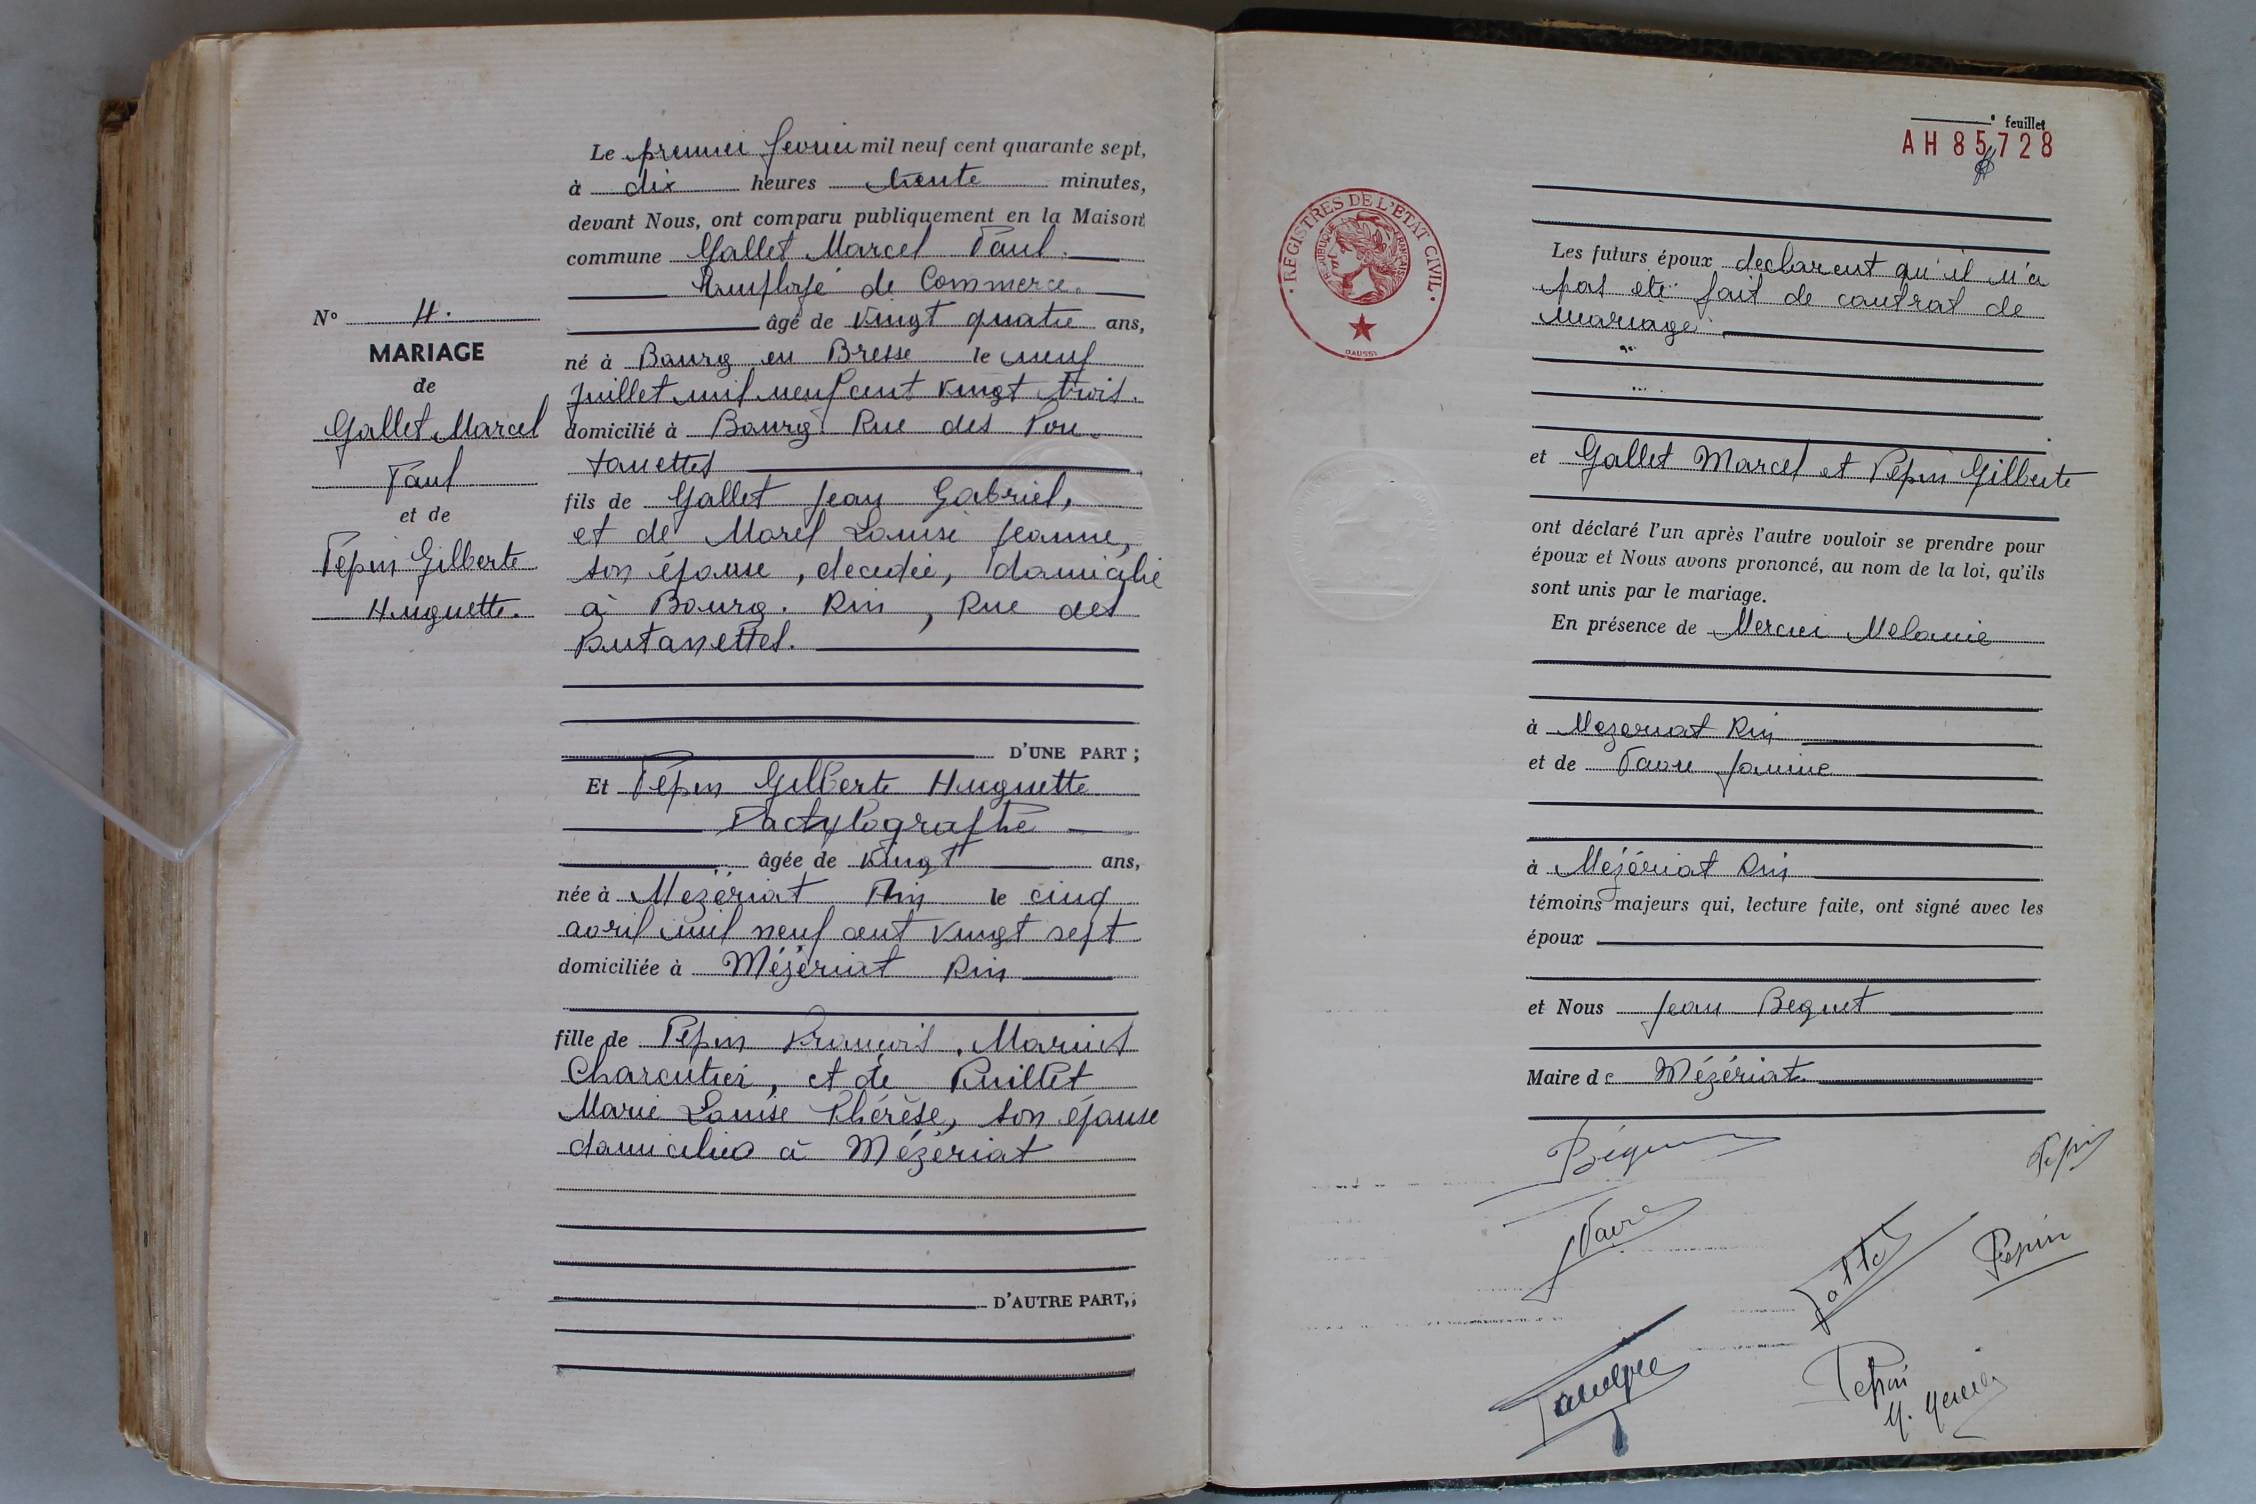 Le premier fevrier mil neuf cent quarante sept,
à dix heures trente minutes,
devant Nous, ont comparu publiquement en la Maison
commune Gallet Marcel Paul.
Employé de Commerce.
âgé de vingt quatre ans,
né à Bourg en Bresse le neuf
juillet mil neuf cent vingt trois.
domicilié à Bourg Rue des Pon-
tanettes
fils de Gallet Jean Gabriel,
et de Morel Louise Jeanne,
son épouse, decedée, domicilié
à Bourg. Ain, Rue des
Pontanettes.
D'UNE PART ;
Et Pépin Gilberte Huguette
Dactylographe
âgée de vingt ans,
née à Mezériat Ain le cinq
avril mil neuf cent vingt sept
domiciliée à Mézériat Ain
fille de Pépin François, Marius
Charcutier, et de Puillet
Marie Louise Thérèse, son épouse
domiciliés à Mézériat
D'AUTRE PART,;
N° 4.
MARIAGE
de
Gallet Marcel
Paul
et de
Pépin Gilberte
Huguette.
feuillet
AH 85728
REGISTRES DE L'ETAT CIVIL
REPUBLIQUE FRANÇAISE
DAUSSY
Les futurs époux declarent qu'il n'a
pas été fait de contrat de
mariage
et Gallet Marcel et Pépin Gilberte
ont déclaré l'un après l'autre vouloir se prendre pour
époux et Nous avons prononcé, au nom de la loi, qu'ils
sont unis par le mariage.
En présence de Mercier Melanie
à Mezeriat Ain
et de Favre Janine
à Mézériat Ain
témoins majeurs qui, lecture faite, ont signé avec les
époux
et Nous Jean Beguet
Maire de Mézériat
Béguet
Pepin
Favre
Gallet
Pepin
Pepin
M. Mercier